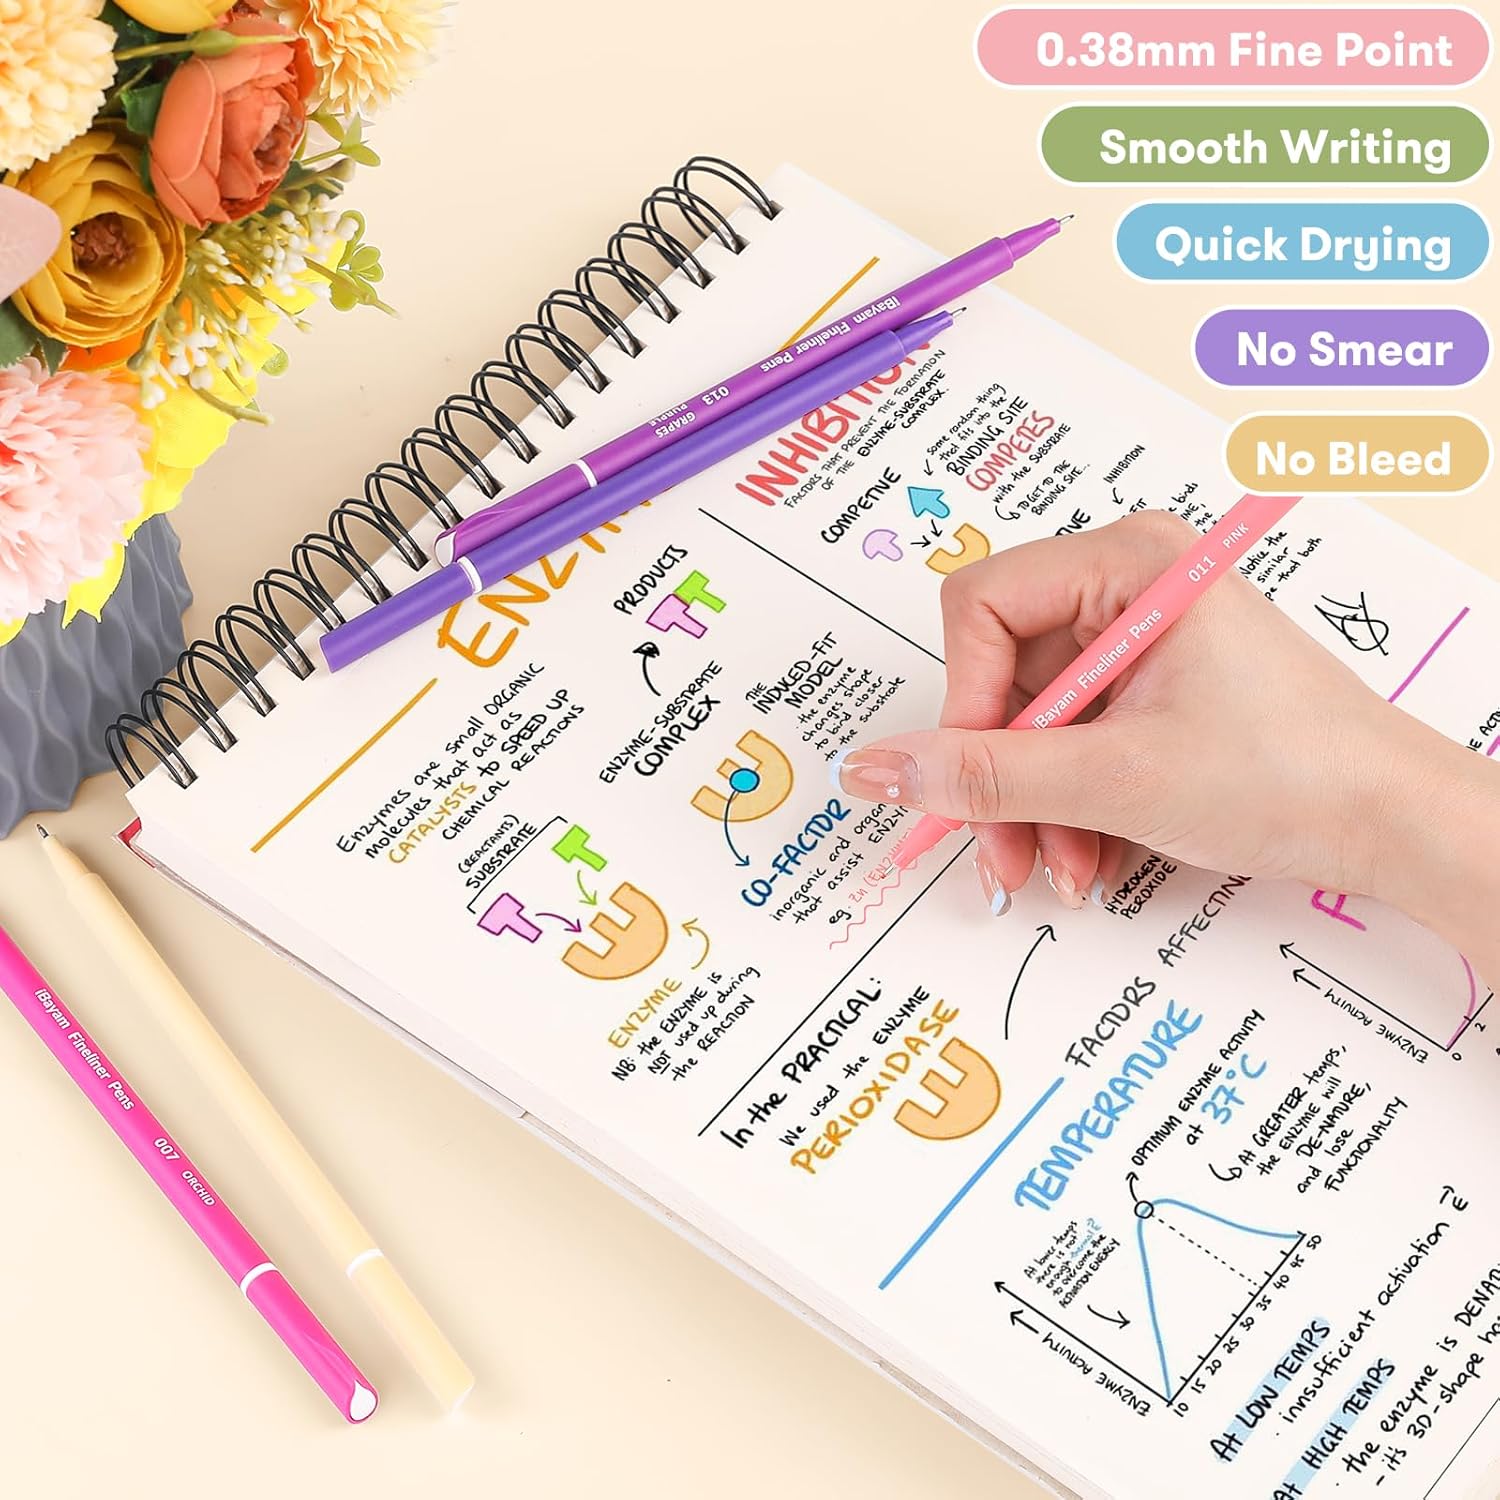 0.38mm Fine Point
Smooth Writing
Quick Drying
No Smear
No Bleed
iBayam Fineliner Pens 013 GRAPES PURPLE
iBayam Fineliner Pens 011 PINK
iBayam Fineliner Pens 007 ORCHID
Enzymes are small ORGANIC
molecules that act as
CATALYSTS to SPEED UP
CHEMICAL REACTIONS
(REACTANTS)
SUBSTRATE
ENZYME
NB: the ENZYME is
NOT used up during
the REACTION
PRODUCTS
ENZYME-SUBSTRATE
COMPLEX
THE
INDUCED-FIT
MODEL
the enzyme
changes shape
to bind closer
to the substrate
CO-FACTOR
inorganic and organ
that assist ENZY
eg. Zn (ENZ
INHIBITION
FACTORS THAT PREVENT THE FORMATION
OF THE ENZYME-SUBSTRATE
COMPLEX.
COMPETIVE
some random thing
that fits into the
BINDING SITE
COMPETES
with the SUBSTRATE
TO GET TO THE
BINDING SITE...
INHIBITION
Notice the
similar
that both
In the PRACTICAL:
We used the ENZYME
PERIOXIDASE
HYDROGEN
PEROXIDE
FACTORS AFFECTING
TEMPERATURE
OPTIMUM ENZYME ACTIVITY
at 37°C
At GREATER temps,
the ENZYME will
DE-NATURE,
and lose
FUNCTIONALITY
At lower temps
there is not
enough thermal E
to overcome the
ACTIVATION ENERGY
ENZYME ACTIVITY
10 15 20 25 30 35 40 45 50
ENZYME ACTIVITY
0 2
At LOW TEMPS
· innsufficient activation E
At HIGH TEMPS
· the enzyme is DENAT
- it's 3D-shape ha